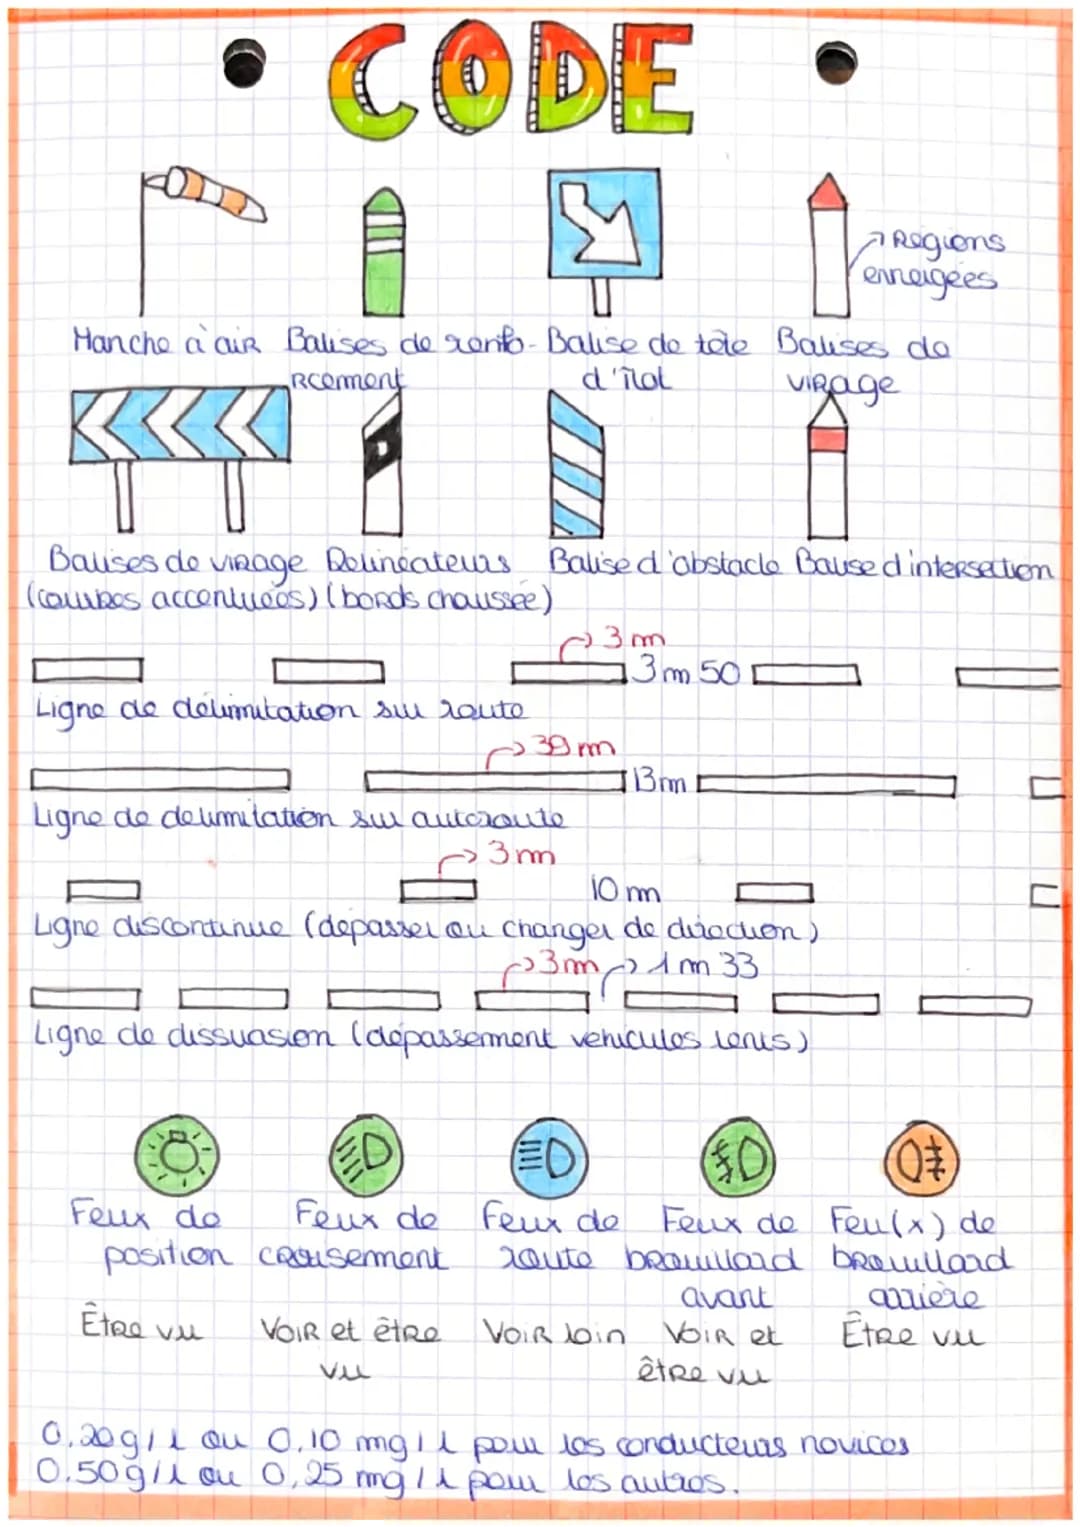 CODE
→ Régions
enneigées
Manche à air Balises de renfo- Balise de tête Balises de
rcement d'îlot virage
Balises de virage Délinéateurs Balise d'obstacle Balise d'intersection
(courbes accentuées) (bords chaussée)
→ 3 m
3 m 50
Ligne de délimitation sur route
→ 39 m
13 m
Ligne de délimitation sur autoroute
→ 3 m
10 m
Ligne discontinue (dépasser ou changer de direction)
→ 3 m → 1 m 33
Ligne de dissuasion (dépassement véhicules lents)
Feux de Feux de Feux de Feux de Feu(x) de
position croisement route brouillard brouillard
avant arrière
Être vu Voir et être Voir loin Voir et Être vu
vu être vu
0,20 g/l ou 0,10 mg/l pour les conducteurs novices
0,50 g/l ou 0,25 mg/l pour les autres.